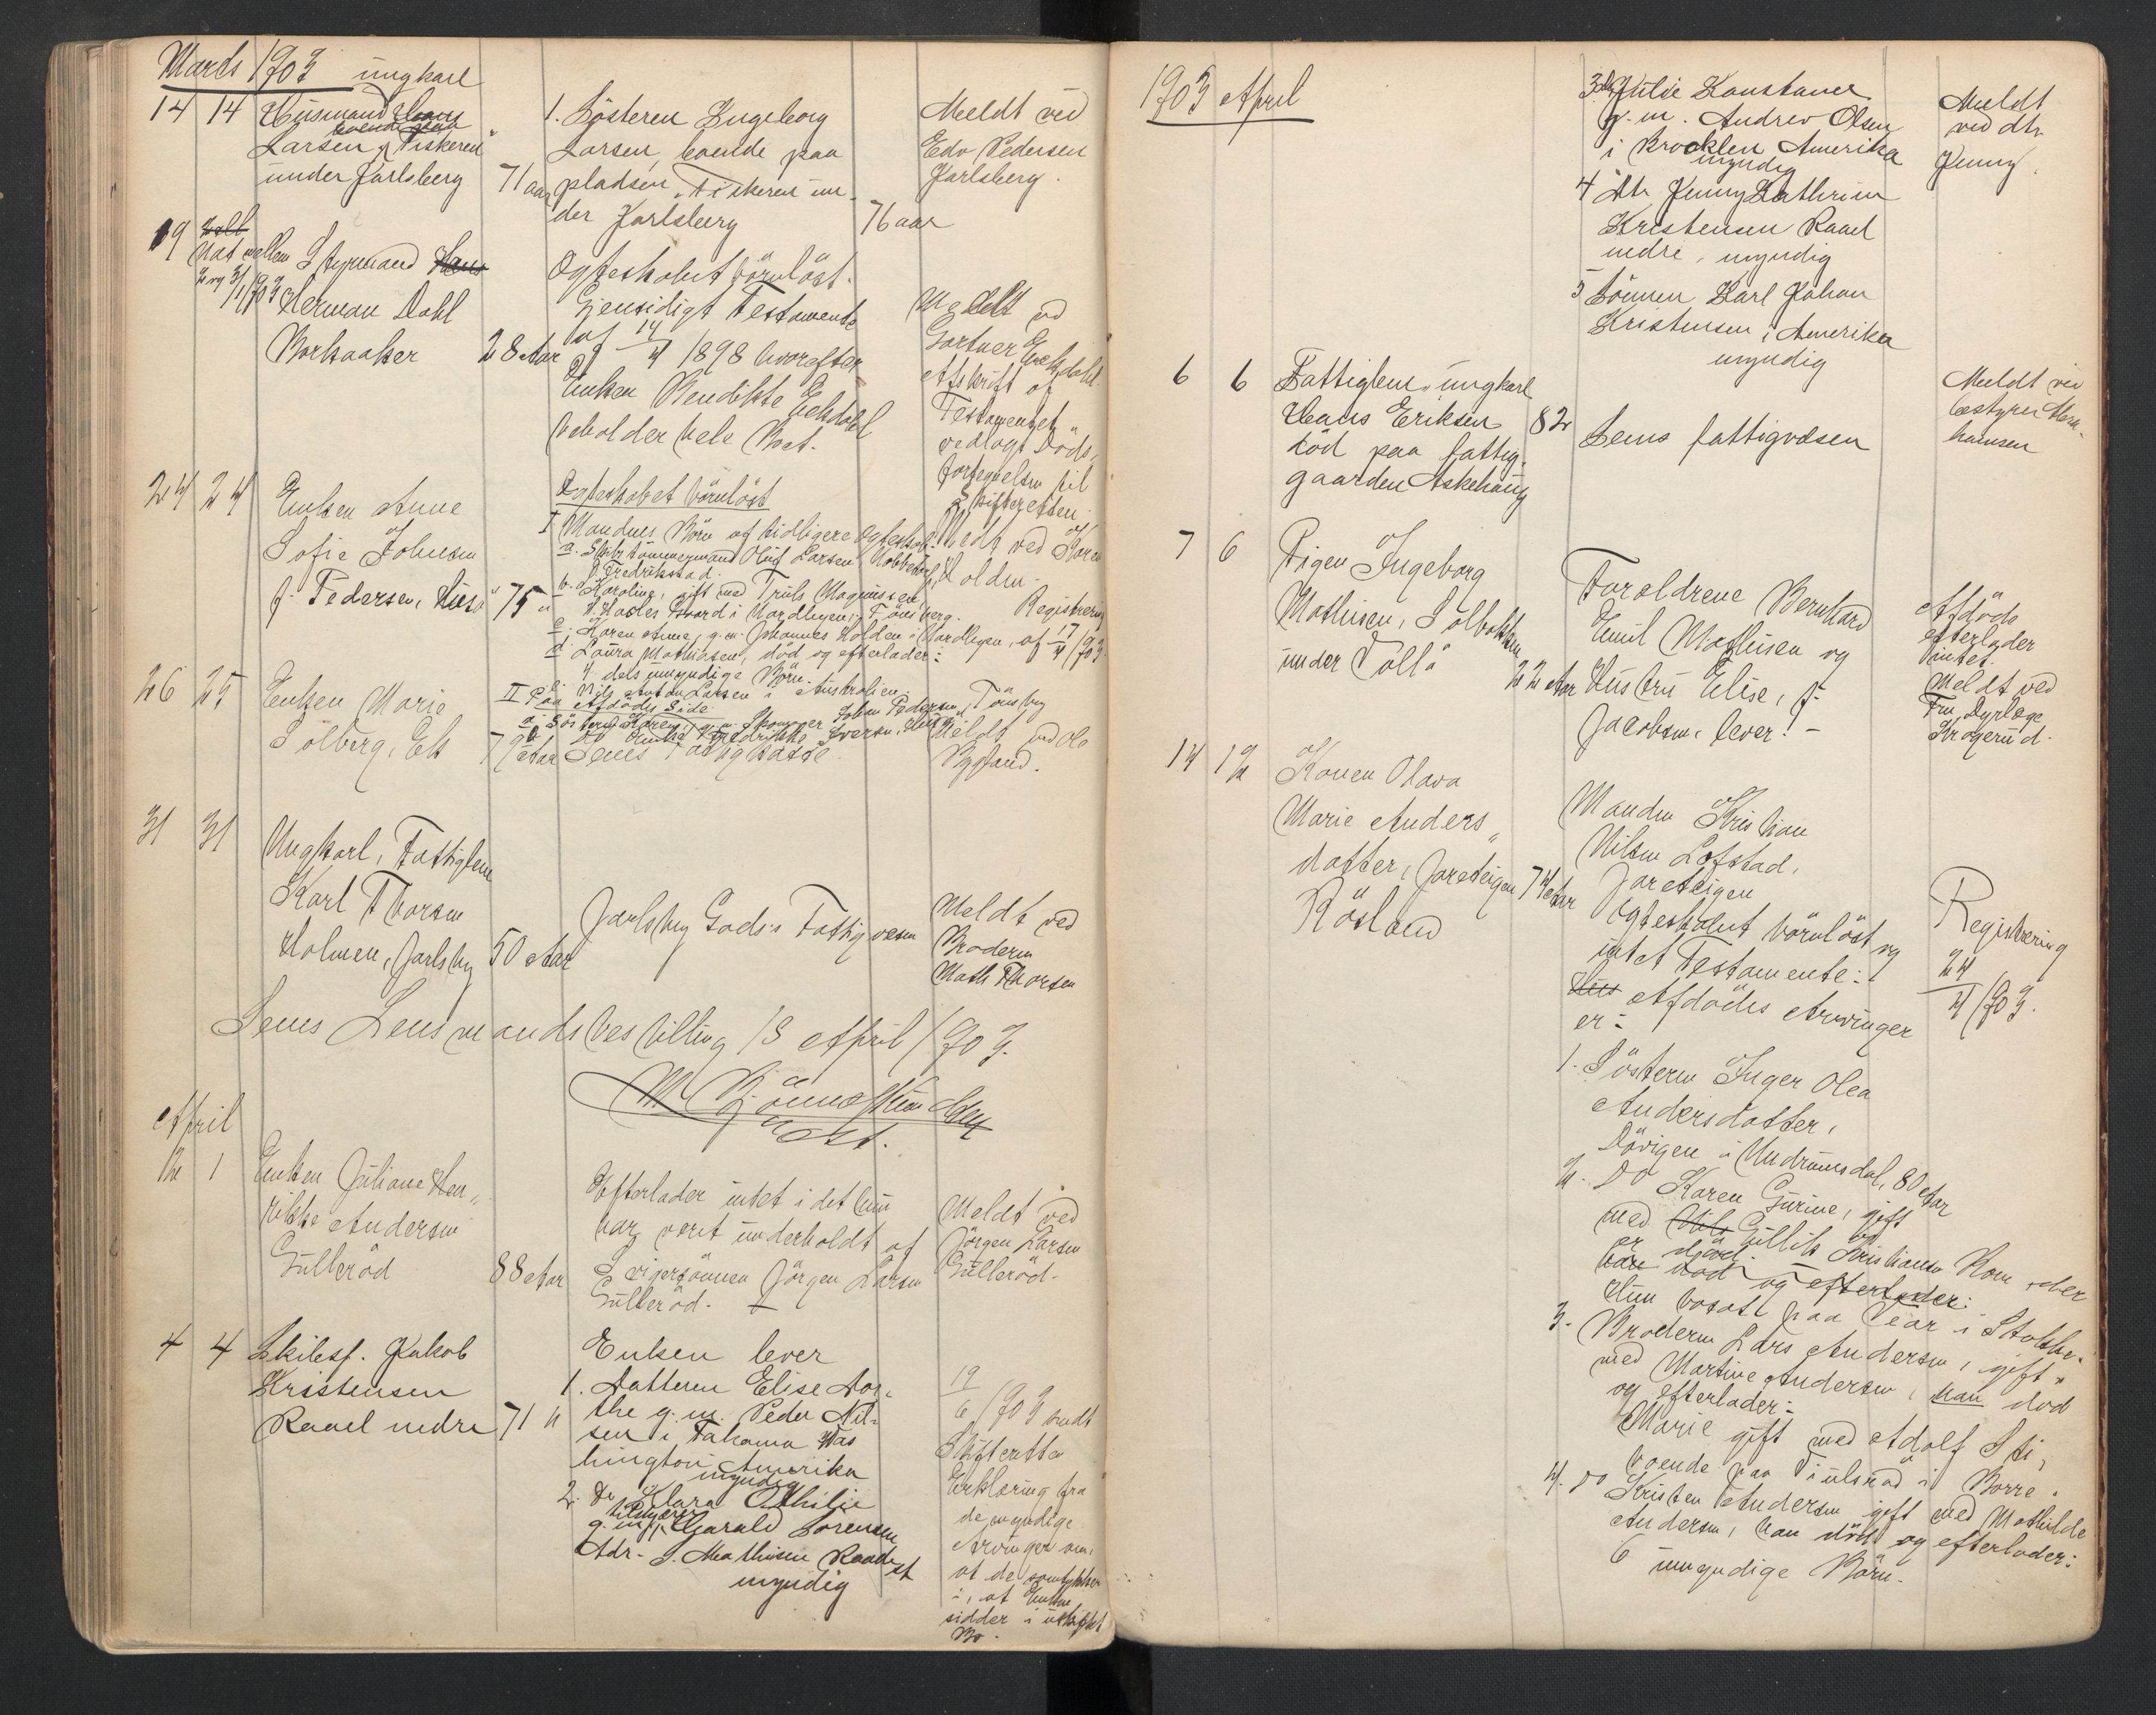 Marts 1903
14 14 Husmand ungkarl Hans
Larsen boende paa "Fiskeren"
under Jarlsberg 71 aar
1. Søsteren Ingeborg
Larsen, boende paa
pladsen "Fiskeren un-
der Jarlsberg 76 aar
Meldt ved
Edv Pedersen
Jarlsberg.
19
Nat mellem
2 og 3/1 1903
Styrmand Hans
Herman Dahl
Borkaaker 28 Aar
Ægteskabet børnløst.
Gjensidigt Testamente
af 14/4 1898 hvorefter
Enken Bendikte Ekdahl
beholder hele Boet.
Meldt ved
Gartner Ekdahl
Afskrift af
Testamentet
vedlagt Døds-
fortegnelsen til
Skifteretten.
24 24 Enken Anne
Sofie Johnsen
f. Pedersen, Huseb 75 "
Ægteskabet børnløst
I Mandens Børn af tidligere Ægteskab:
a. Skibstømmermand Oluf Larsen
Fredrikstad.
b. Karoline, gift med Truls Magnussen
Gaard i Nordbyen, Tønsberg.
c. Karen Anne, g. m. Johannes Holden i Nordbyen,
d. Laura Mathiasen, død og efterlader:
4 dels umyndige Børn.
e. Nils Anton Larsen i Australien.
II Paa Afdødes Side:
a. Søsteren Karen, g. m. Skomager Johan Pedersen, Tønsbg
b. do Enke Fredrikke Iversen,
Meldt ved Karen
Holden.
Registrering
af 17/4 1903.
26 25 Enken Marie
Solberg, Ek 79 Aar
Sems Fattigkasse.
Meldt ved Ole
Bygland.
31 31 Ungkarl, Fattiglem
Karl Thorsen
Holmen, Jarlsbg 50 Aar
Jarlsberg Gods's Fattigvesen
Meldt ved
Broderen
Math Thorsen
Sems Lensmandsbestilling 13 April 1903.
M. Bjønnes
Kst.
April
2 1 Enken Juliane Hen-
rikke Andersen
Gulleröd 88 Aar
Efterlader intet i det hun
har vært underholdt af
Svigersønnen Jørgen Larsen
Gulleröd.
Meldt ved
Jørgen Larsen
Gulleröd.
4 4 Skibsf. Jakob
Kristensen
Raael nedre 71 "
Enken lever
1. Datteren Elise Dor-
the g. m. Peder Nil-
sen i Takoma Was
hington Amerika
myndig
2. Do Klara Othilie
g. m. Harald Sorensen
Adr. S. Mathisen Raael
myndig
19/6 1903 sendt
Skifteretten
Erklæring fra
de myndige
Arvinger om
at de samtykker
i, at Enken
sidder i uskiftet
Bo.
1903 April
3 do Julie Konstance
g. m. Andrew Olsen
i Brocklen Amerika
myndig
4 Dtr Jenny Kathrine
Kristensen Raael
nedre, myndig
5 Sønnen Karl Johan
Kristensen i Amerika
myndig
Meldt
ved dtr
Jenny.
6 6 Fattiglem, ungkarl
Hans Eriksen 82
død paa fattig-
gaarden Askehaug
Sems fattigvæsen
Meldt ved
bestyrer Abra-
hamsen
7 6 Pigen Ingeborg
Mathisen, Solbakken
under Tollø 22 Aar
Foreldrene Bernhard
Emil Mathisen og
Hustru Elise, f.
Jacobsen, lever! –
Afdøde
efterlader
intet.
Meldt ved
Fru Dyrlæge
Krogerud.
14 12 Konen Olava
Marie Anders-
datter, Jareteigen 74 Aar
Røsland
Manden Kristian
Nilsen Lofstad,
Jareteigen
Ægteskabet børnløst og
intet Testamente:
Afdødes Arvinger
er:
Registrering
24/4 1903.
1. Søsteren Inger Olea
Andersdatter,
Døvigen i Undrumsdal, 80 Aar
2. Do Karen Gurine, gift
med Nils Gullik Kristiansen
er død og efterlader:
Hun bosat paa Vear i Stokke.
3. Broderen Lars Andersen, gift
med Martine Andersen, han død
og efterlader:
Marie gift med Adolf Sti,
boende paa Fiulsrød i Borre.
4. Do Kristen Andersen gift med Mathilde
Andersen, han død og efterlader:
6 umyndige Børn.